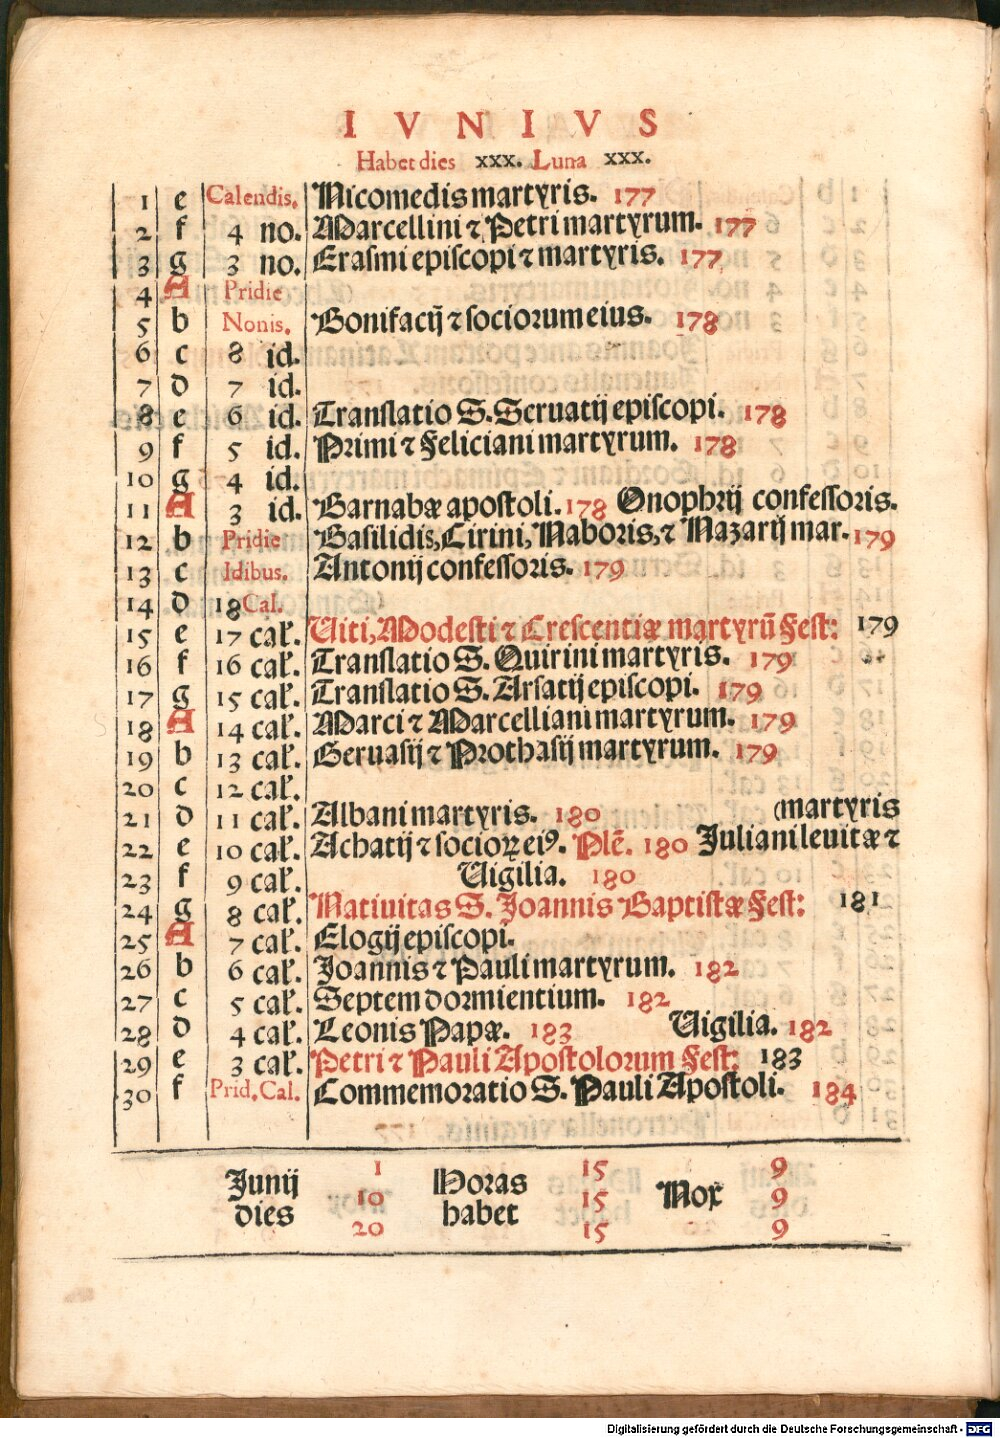 IVNIVS
Habet dies xxx. Luna xxx.
1 e Calendis. Nicomedis martyris. 177
2 f 4 no. Marcellini ⁊ Petri martyrum. 177
3 g 3 no. Erasmi episcopi ⁊ martyris. 177
4 A Pridie
5 b Nonis. Bonifacij ⁊ sociorum eius. 178
6 c 8 id.
7 d 7 id.
8 e 6 id. Translatio S. Seruatij episcopi. 178
9 f 5 id. Primi ⁊ Feliciani martyrum. 178
10 g 4 id.
11 A 3 id. Barnabæ apostoli. 178 Onophrij confessoris.
12 b Pridie Basilidis, Cirini, Naboris, ⁊ Nazarij mar. 179
13 c Idibus. Antonij confessoris. 179
14 d 18 Cal.
15 e 17 cal. Uiti, Modesti ⁊ Crescentiæ martyrū Fest: 179
16 f 16 cal. Translatio S. Quirini martyris. 179
17 g 15 cal. Translatio S. Arsatij episcopi. 179
18 A 14 cal. Marci ⁊ Marcelliani martyrum. 179
19 b 13 cal. Geruasij ⁊ Prothasij martyrum. 179
20 c 12 cal.
21 d 11 cal. Albani martyris. 180 (martyris
22 e 10 cal. Achatij ⁊ socioꝝ eiꝰ. Plē. 180 Juliani leuitæ ⁊
23 f 9 cal. Uigilia. 180
24 g 8 cal. Natiuitas S. Joannis Baptistæ Fest: 181
25 A 7 cal. Elogij episcopi.
26 b 6 cal. Joannis ⁊ Pauli martyrum. 182
27 c 5 cal. Septem dormientium. 182
28 d 4 cal. Leonis Papæ. 183 Uigilia. 182
29 e 3 cal. Petri ⁊ Pauli Apostolorum Fest: 183
30 f Prid. Cal. Commemoratio S. Pauli Apostoli. 184
Junij dies 1 10 20 Horas habet 15 15 15 Nox 9 9 9
Digitalisierung gefördert durch die Deutsche Forschungsgemeinschaft - DFG